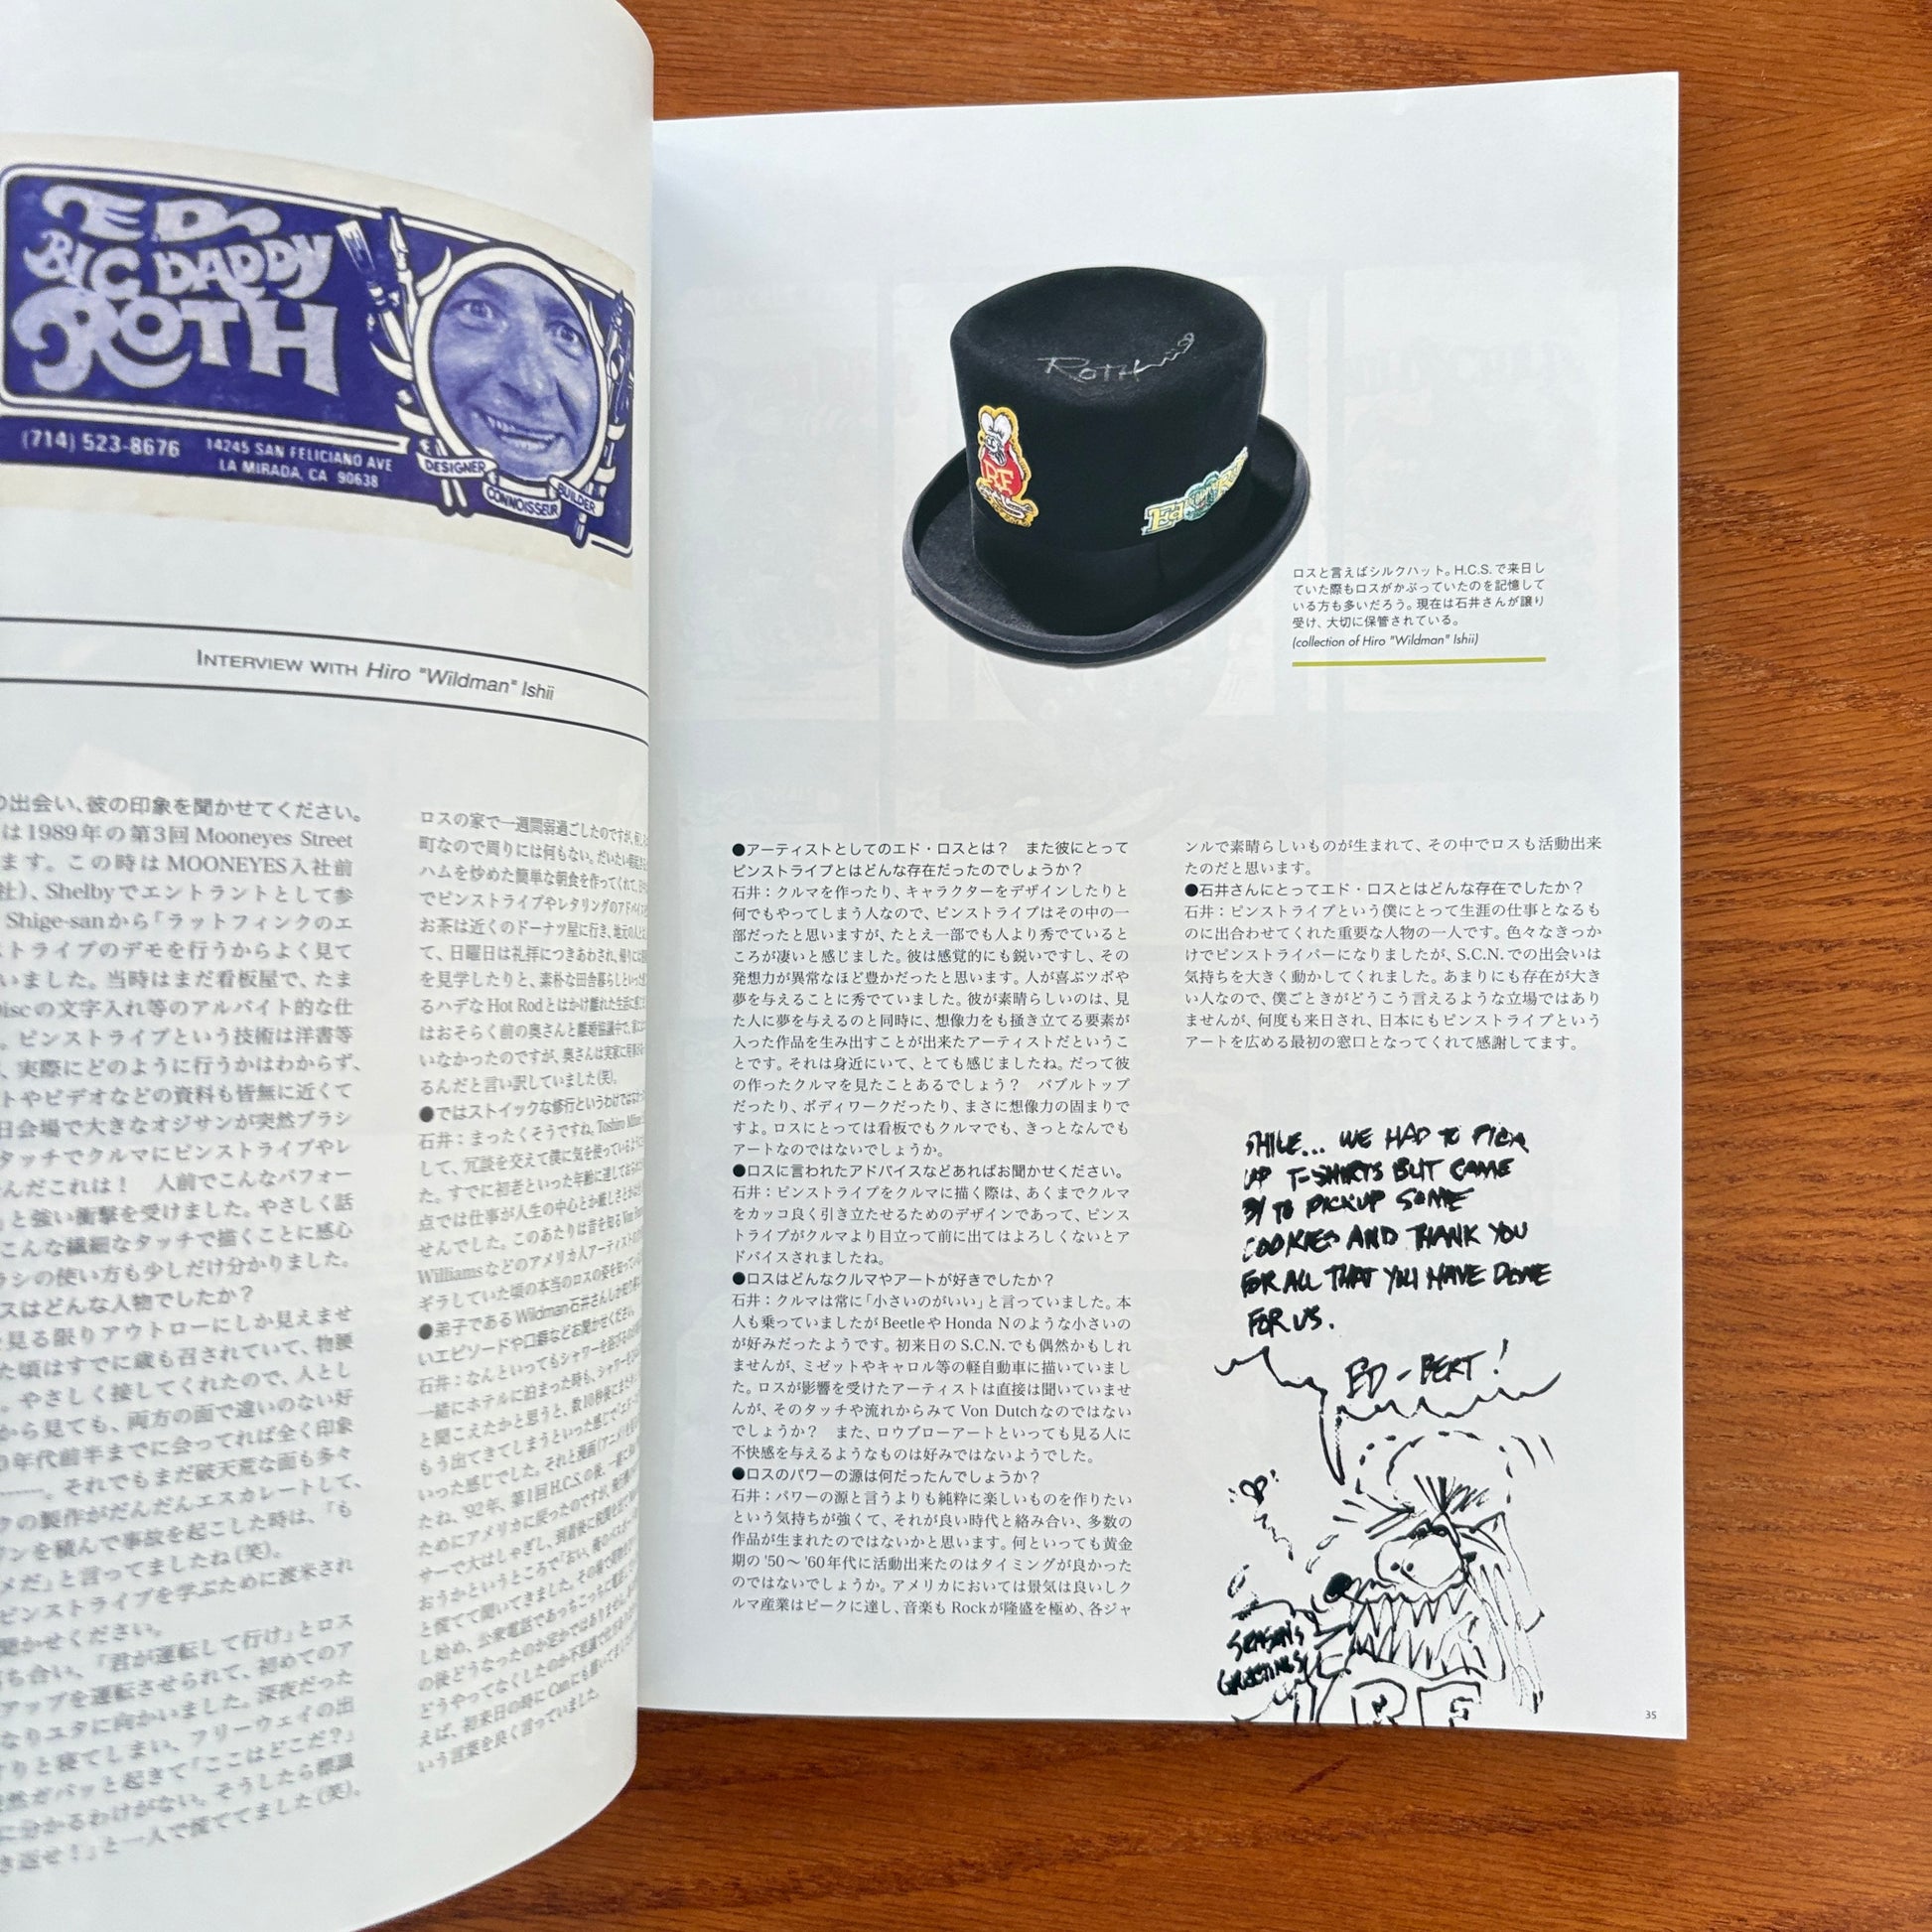 ED
BIG DADDY
ROTH
(714) 523-8676
14245 SAN FELICIANO AVE
LA MIRADA, CA 90638
DESIGNER
CONNOISSEUR
BUILDER
INTERVIEW WITH Hiro "Wildman" Ishii
の出会い、彼の印象を聞かせてください。
は1989年の第3回 Mooneyes Street
ます。この時は MOONEYES入社前
社)、Shelbyでエントラントとして参
Shige-sanから「ラットフィンクのエ
ストライプのデモを行うからよく見て
いました。当時はまだ看板屋で、たま
Discの文字入れ等のアルバイト的な仕
。ピンストライプという技術は洋書等
、実際にどのように行うかはわからず、
トやビデオなどの資料も皆無に近くて
日会場で大きなオジサンが突然ブラシ
タッチでクルマにピンストライプやレ
んだこれは！　人前でこんなパフォー
」と強い衝撃を受けました。やさしく話
こんな繊細なタッチで描くことに感心
ラシの使い方も少しだけ分かりました。
スはどんな人物でしたか？
見る限りアウトローにしか見えませ
た頃はすでに歳も召されていて、物腰
。やさしく接してくれたので、人とし
から見ても、両方の面で違いのない好
0年代前半までに会ってれば全く印象
。それでもまだ破天荒な面も多々
クの製作がだんだんエスカレートして、
ンを積んで事故を起こした時は、「も
メだ」と言ってましたね(笑)。
ピンストライプを学ぶために渡米され
聞かせください。
ち合い、「君が運転して行け」とロス
アップを運転させられて、初めてのア
なりユタに向かいました。深夜だった
すりと寝てしまい、フリーウェイの出
然ガバッと起きて「ここはどこだ？」
に分かるわけがない。そうしたら標識
き返せ！」と一人で慌ててました(笑)。
ロスの家で一週間弱過ごしたのですが、
町なので周りには何もない。だいたい
ハムを炒めた簡単な朝食を作ってくれて、
でピンストライプやレタリングのアドバイス
お茶は近くのドーナツ屋に行き、地元の人
て、日曜日は礼拝につきあわされ、
を見学したりと、素朴な田舎暮らし
るハデな Hot Rodとはかけ離れた生活
はおそらく前の奥さんと離婚協議中で、
いなかったのですが、奥さんは実家に
るんだと言い訳していました(笑)。
●ではストイックな修行というわけでは
石井：まったくそうですね。Toshiro
して、冗談を交えて僕に気を使っている
た。すでに初老といった年齢に達して
点では仕事が人生の中心とか厳しさ
せんでした。このあたりは昔を知る
Williamsなどのアメリカ人アーティスト
ギラしていた頃の本当のロスの姿を知って
●弟子であるWildman石井さんしか知り
いエピソードや口癖などお聞かせください。
石井：なんといってもシャワーを浴びる
一緒にホテルに泊まった時も、シャワー
と聞こえたかと思うと、数10秒後にまた
もう出てきてしまうといった感じで
いった感じでした。それと漫画(アニメ)
たね。'92年、第1回H.C.S.の後、一緒に
ためにアメリカに戻ったのですが、
サーで大はしゃぎし、到着後に税関を
おうかというところで「おい、俺のパス
と慌てて聞いてきました。その場で
し始め、公衆電話であっちこっちに電話
の後どうなったのか定かではありません
どうやってなくしたのか不思議で
えば、初来日の時に Canにも
いう言葉を良く言っていました。
ROTH
RF
Ed
ロスと言えばシルクハット。H.C.S.で来日し
ていた際もロスがかぶっていたのを記憶して
いる方も多いだろう。現在は石井さんが譲り
受け、大切に保管されている。
(collection of Hiro "Wildman" Ishii)
●アーティストとしてのエド・ロスとは？　また彼にとって
ピンストライプとはどんな存在だったのでしょうか？
石井：クルマを作ったり、キャラクターをデザインしたりと
何でもやってしまう人なので、ピンストライプはその中の一
部だったと思いますが、たとえ一部でも人より秀でていると
ころが凄いと感じました。彼は感覚的にも鋭いですし、その
発想力が異常なほど豊かだったと思います。人が喜ぶツボや
夢を与えることに秀でていました。彼が素晴らしいのは、見
た人に夢を与えるのと同時に、想像力をも掻き立てる要素が
入った作品を生み出すことが出来たアーティストだというこ
とです。それは身近にいて、とても感じましたね。だって彼
の作ったクルマを見たことあるでしょう？　バブルトップ
だったり、ボディワークだったり、まさに想像力の固まりで
すよ。ロスにとっては看板でもクルマでも、きっとなんでも
アートなのではないでしょうか。
●ロスに言われたアドバイスなどあればお聞かせください。
石井：ピンストライプをクルマに描く際は、あくまでクルマ
をカッコ良く引き立たせるためのデザインであって、ピンス
トライプがクルマより目立って前に出てはよろしくないとア
ドバイスされましたね。
●ロスはどんなクルマやアートが好きでしたか？
石井：クルマは常に「小さいのがいい」と言っていました。本
人も乗っていましたが BeetleやHonda Nのような小さいの
が好みだったようです。初来日の S.C.N.でも偶然かもしれ
ませんが、ミゼットやキャロル等の軽自動車に描いていまし
た。ロスが影響を受けたアーティストは直接は聞いていませ
んが、そのタッチや流れからみて Von Dutchなのではない
でしょうか？　また、ロウブローアートといっても見る人に
不快感を与えるようなものは好みではないようでした。
●ロスのパワーの源は何だったんでしょうか？
石井：パワーの源と言うよりも純粋に楽しいものを作りたい
という気持ちが強くて、それが良い時代と絡み合い、多数の
作品が生まれたのではないかと思います。何といっても黄金
期の '50〜 '60年代に活動出来たのはタイミングが良かった
のではないでしょうか。アメリカにおいては景気は良いしク
ルマ産業はピークに達し、音楽も Rockが隆盛を極め、各ジャ
ンルで素晴らしいものが生まれて、その中でロスも活動出来
たのだと思います。
●石井さんにとってエド・ロスとはどんな存在でしたか？
石井：ピンストライプという僕にとって生涯の仕事となるも
のに出合わせてくれた重要な人物の一人です。色々なきっか
けでピンストライパーになりましたが、S.C.N.での出会いは
気持ちを大きく動かしてくれました。あまりにも存在が大き
い人なので、僕ごときがどうこう言えるような立場ではあり
ませんが、何度も来日され、日本にもピンストライプという
アートを広める最初の窓口となってくれて感謝してます。
SHILE... WE HAD TO PICK
UP T-SHIRTS BUT CAME
BY TO PICKUP SOME
COOKIES AND THANK YOU
FOR ALL THAT YOU HAVE DONE
FOR US.
ED-BERT!
SEASONS
GREETINGS
RF
35